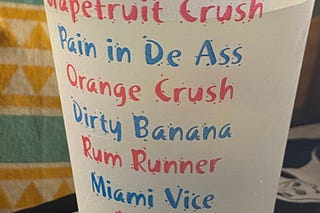 Grapefruit Crush
Pain in De Ass
Orange Crush
Dirty Banana
Rum Runner
Miami Vice